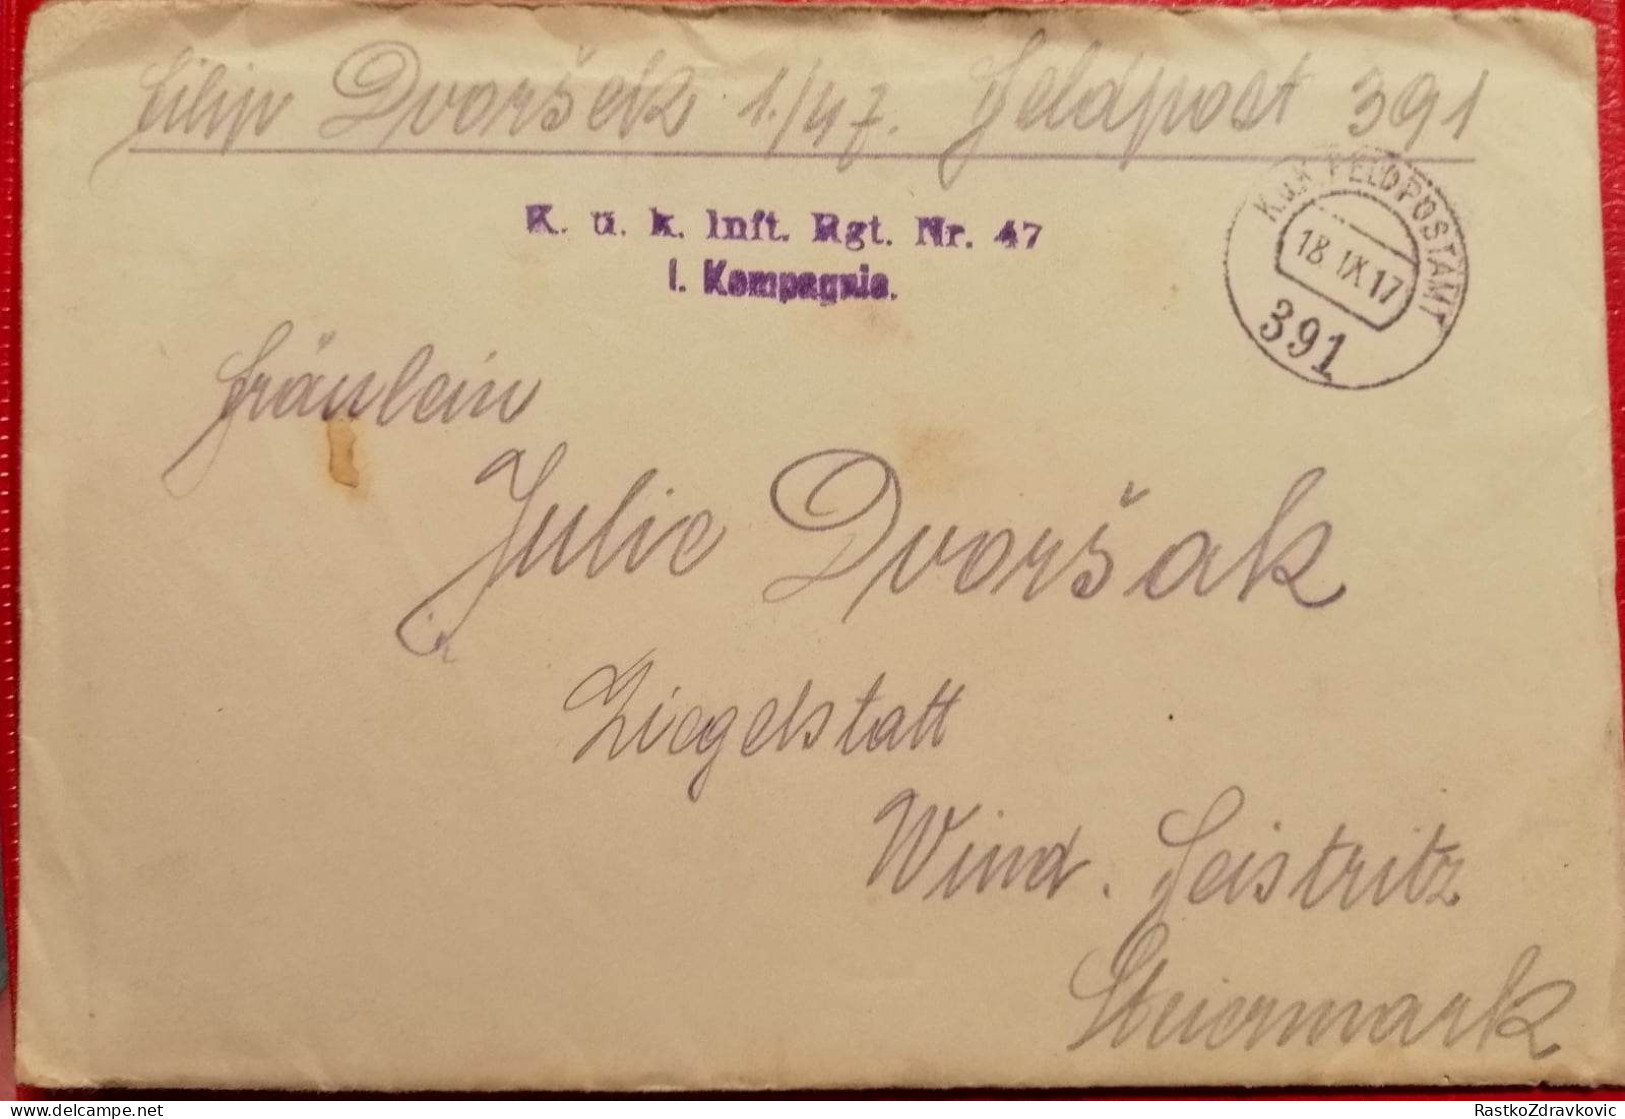 Filip Dvoršek 1./47. Feldpost 391
K. u. k. Inft. Rgt. Nr. 47
1. Kompagnie.
K.u.K. FELDPOSTAMT
18.IX.17
391
Fräulein
Julie Dvoršak
Ziegelstatt
Wind. Feistritz
Steiermark
RastkoZdravkovic